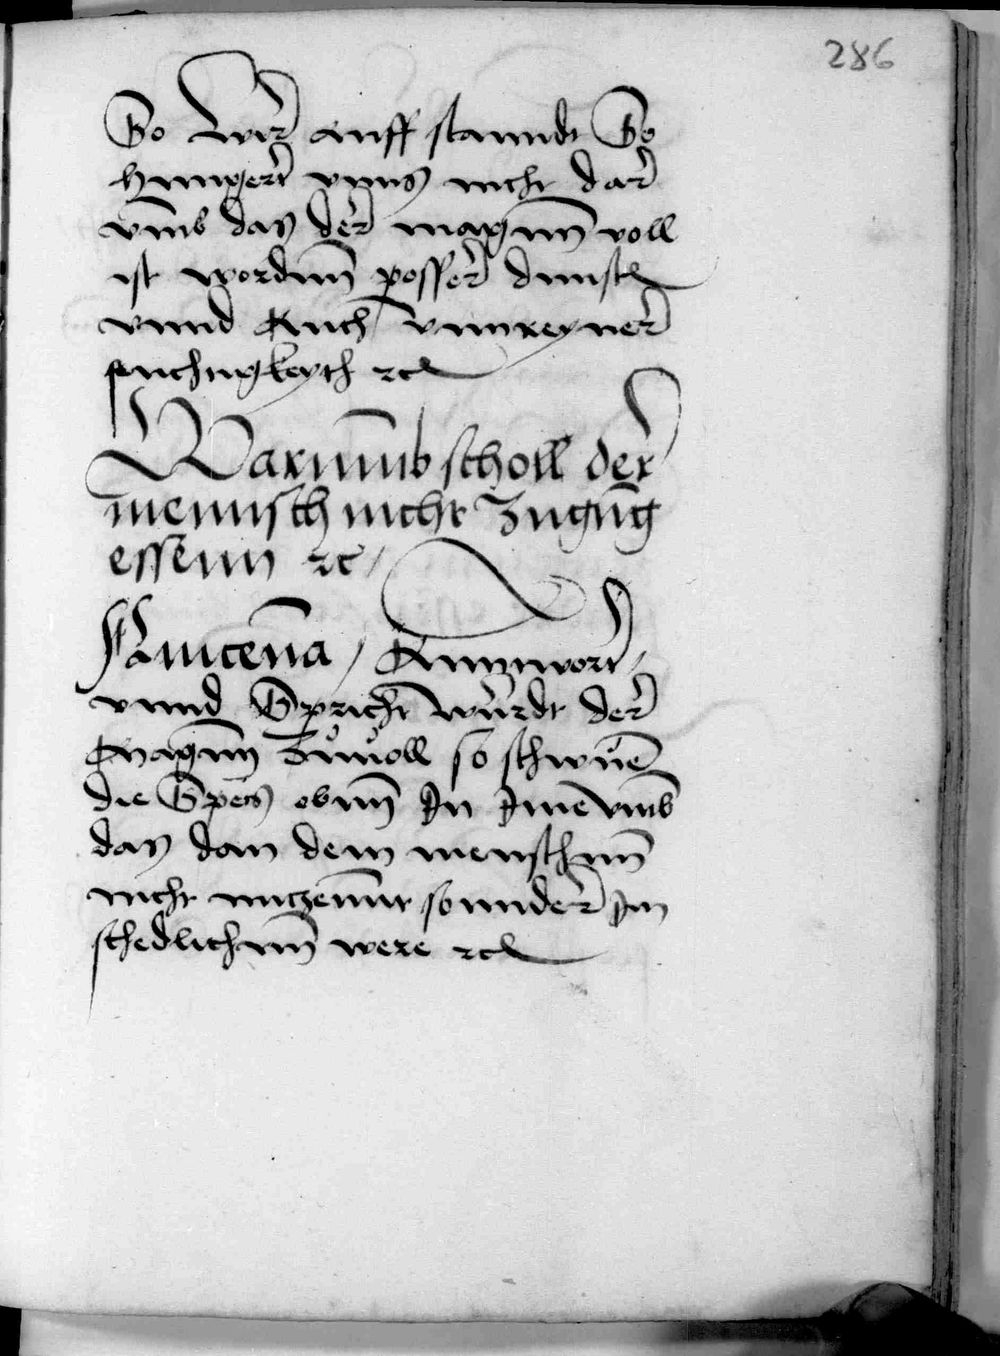 286
So wir auff stanndt So
hungert vnns nicht dar
vmb das der magnn voll
ist wordnn posser dunst
vnnd Auch vnnreyner
feuchtigkeyth ꝛc
Warumb scholl der
mennsch nicht Zugnug
essenn ꝛc /
Auicenna / Anntwort /
vnnd Spricht wurdt der
Magnn Zuuoll so schwume
die Speis obnn Jn Jme vmb
das dan dem menschnn
nicht nutzennt sonnder Jm
schedlichnn were ꝛc